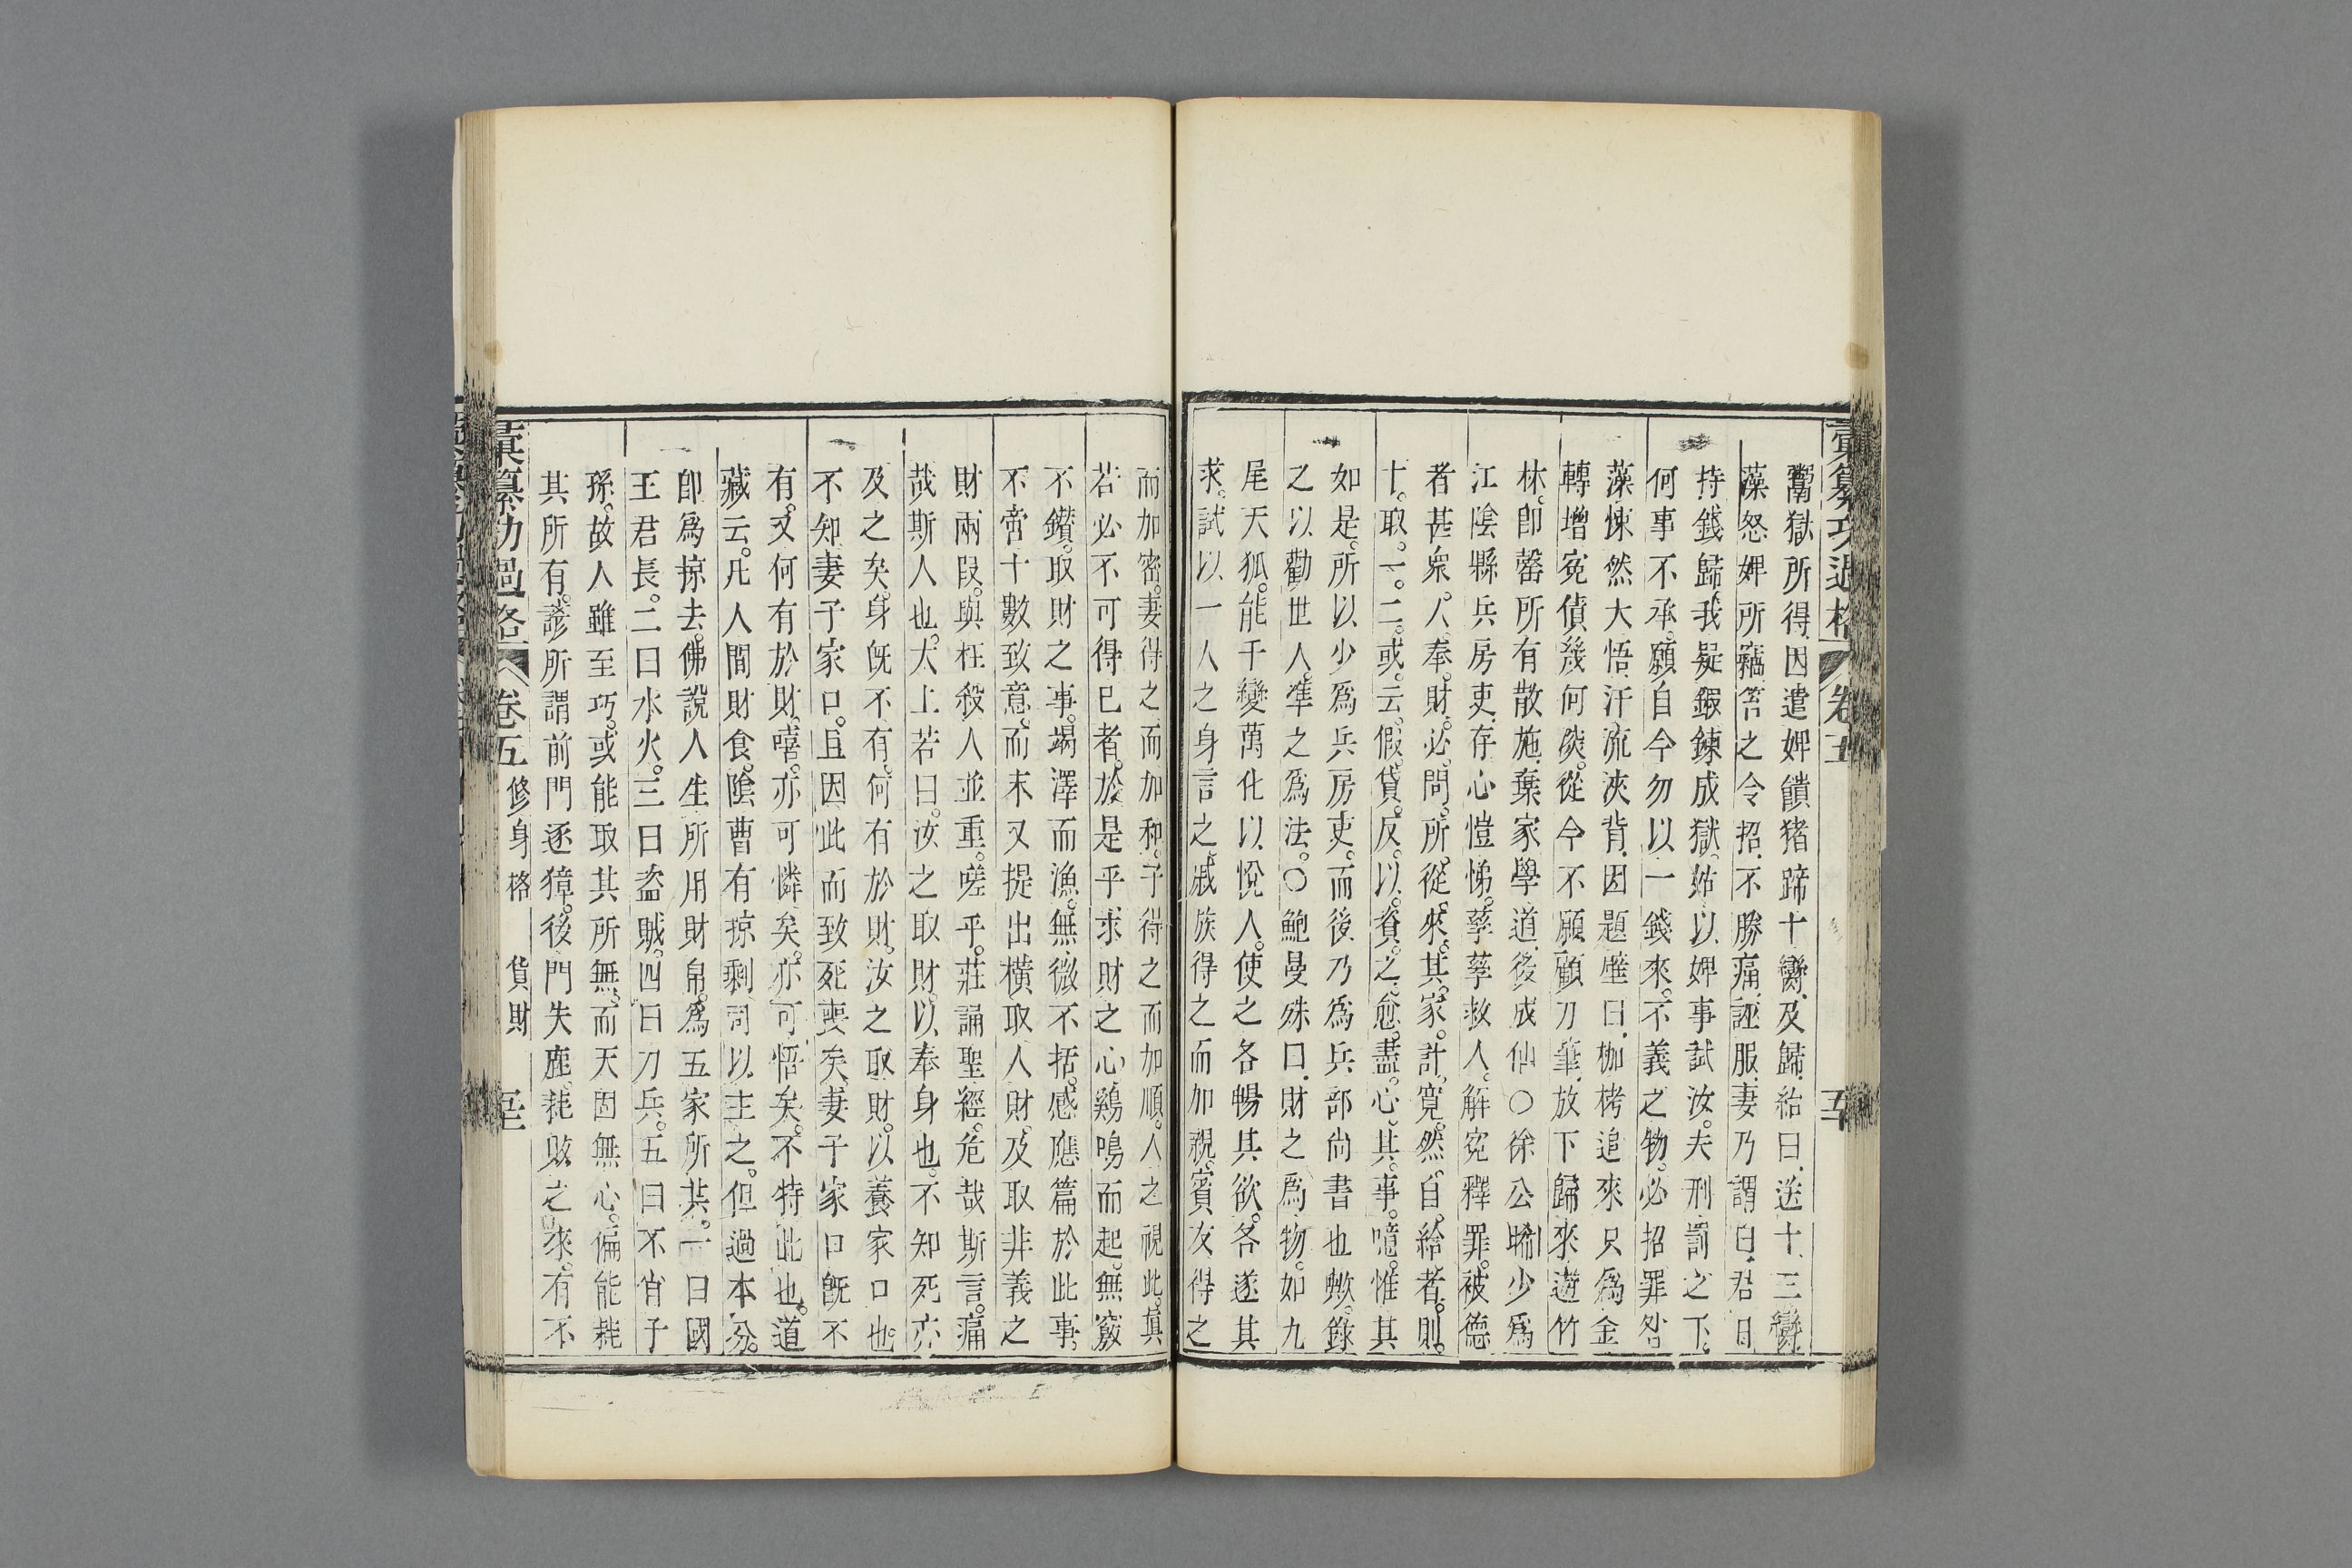 彙纂功過格 卷五 五十
鬻獄所得因遣婢饋猪蹄十臠及歸紿曰送十三臠
藻怒婢所竊笞之令招不勝痛誣服妻乃謂曰君日
持錢歸我疑鍜鍊成獄姑以婢事試汝夫刑罰之下
何事不承願自今勿以一錢來不義之物必招罪咎
藻悚然大悟汗流浹背因題壁曰枷栲追來只爲金
轉增寃債幾何㴱從今不願顧刀筆放下歸來遊竹
林卽罄所有散施棄家學道後成仙○徐公晞少爲
江陰縣兵房吏存心愷悌孳孳救人解寃釋罪被德
者甚衆人奉財必問所從來其家計寬然自給者則
十取一二或云假貸反以資之愈盡心其事噫惟其
如是所以少爲兵房吏而後乃爲兵部尚書也歟錄
之以勸世人準之爲法○鮑曼殊曰財之爲物如九
尾天狐能千變萬化以悅人使之各暢其欲各遂其
求試以一人之身言之戚族得之而加親賓友得之
而加密妻得之而加和子得之而加順人之視此眞
若必不可得已者於是乎求財之心鷄鳴而起無竅
不鑚取財之事竭澤而漁無微不括感應篇於此事
不啻十數致意而末又提出橫取人財及取非義之
財兩段與枉殺人並重嗟乎莊誦聖經危哉斯言痛
哉斯人也太上若曰汝之取財以奉身也不知死亦
及之矣身旣不有何有於財汝之取財以養家口也
不知妻子家口且因此而致死喪矣妻子家口旣不
有又何有於財嘻亦可憐矣亦可悟矣不特此也道
藏云凡人間財食陰曹有掠剩司以主之但過本分
卽爲掠去佛說人生所用財帛爲五家所共一曰國
王君長二曰水火三曰盜賊四曰刀兵五曰不肖子
孫故人雖至巧或能取其所無而天固無心偏能耗
其所有諺所謂前門逐獐後門失鹿耗敗之來有不
彙纂功過格 卷五 修身格 貨財